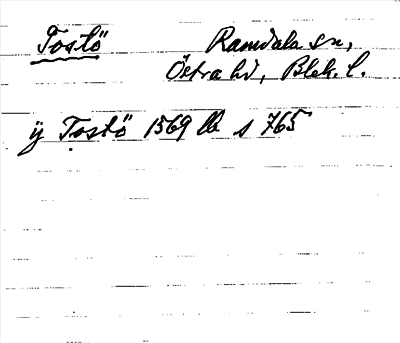 Tostö Ramdala sn,
Östra hd, Blek. l.
ÿ Tostö 1569 lb s 765